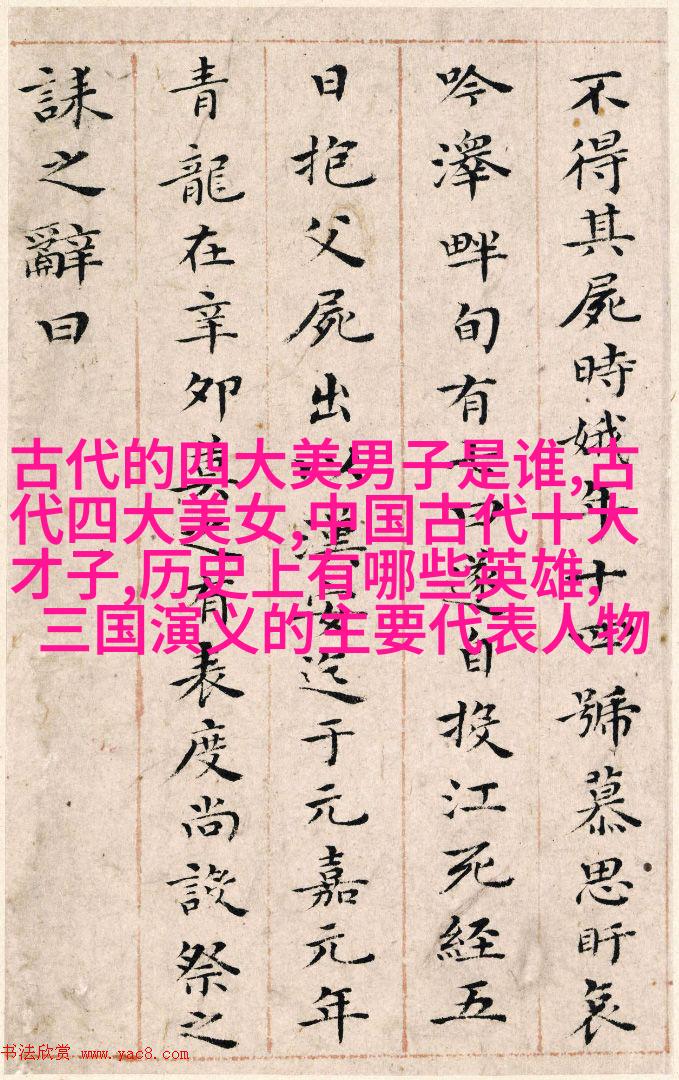 不得其屍時娥年十四號慕思盱哀
吟澤畔旬有七日遂自投江死經五
日抱父屍出以漢安迄于元嘉元年
青龍在辛卯莫之有表度尚設祭之
誄之辭曰
古代的四大美男子是谁,古
代四大美女,中国古代十大
才子,历史上有哪些英雄,
三国演义的主要代表人物
书法欣赏 www.yac8.com